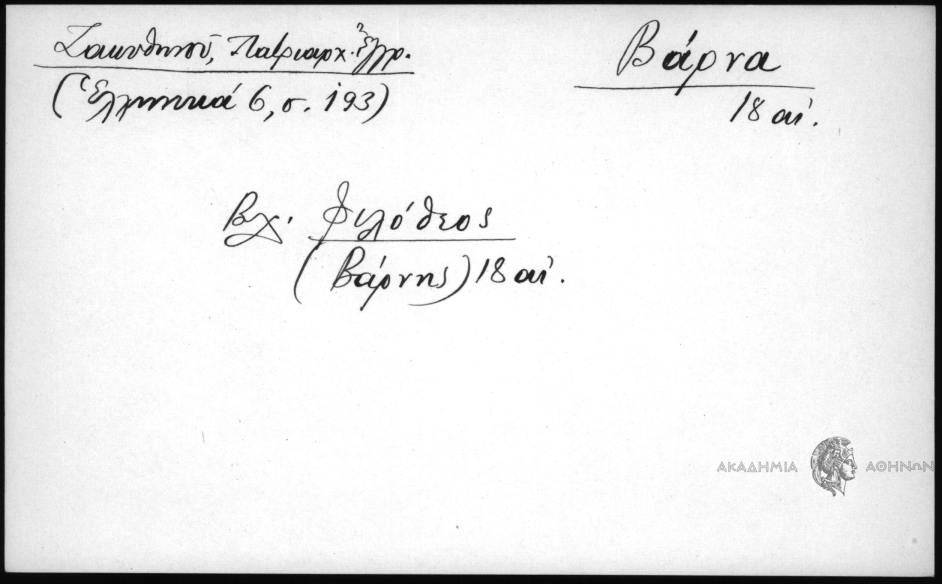 Ζακυθηνοῦ, Πατριαρχ. ἔγγρ.
(Ἑλληνικά 6, σ. 193)
Βάρνα
18 αἰ.
Βλ. Φιλόθεος
(Βάρνης) 18 αἰ.
ΑΚΑΔΗΜΙΑ ΑΘΗΝΩΝ